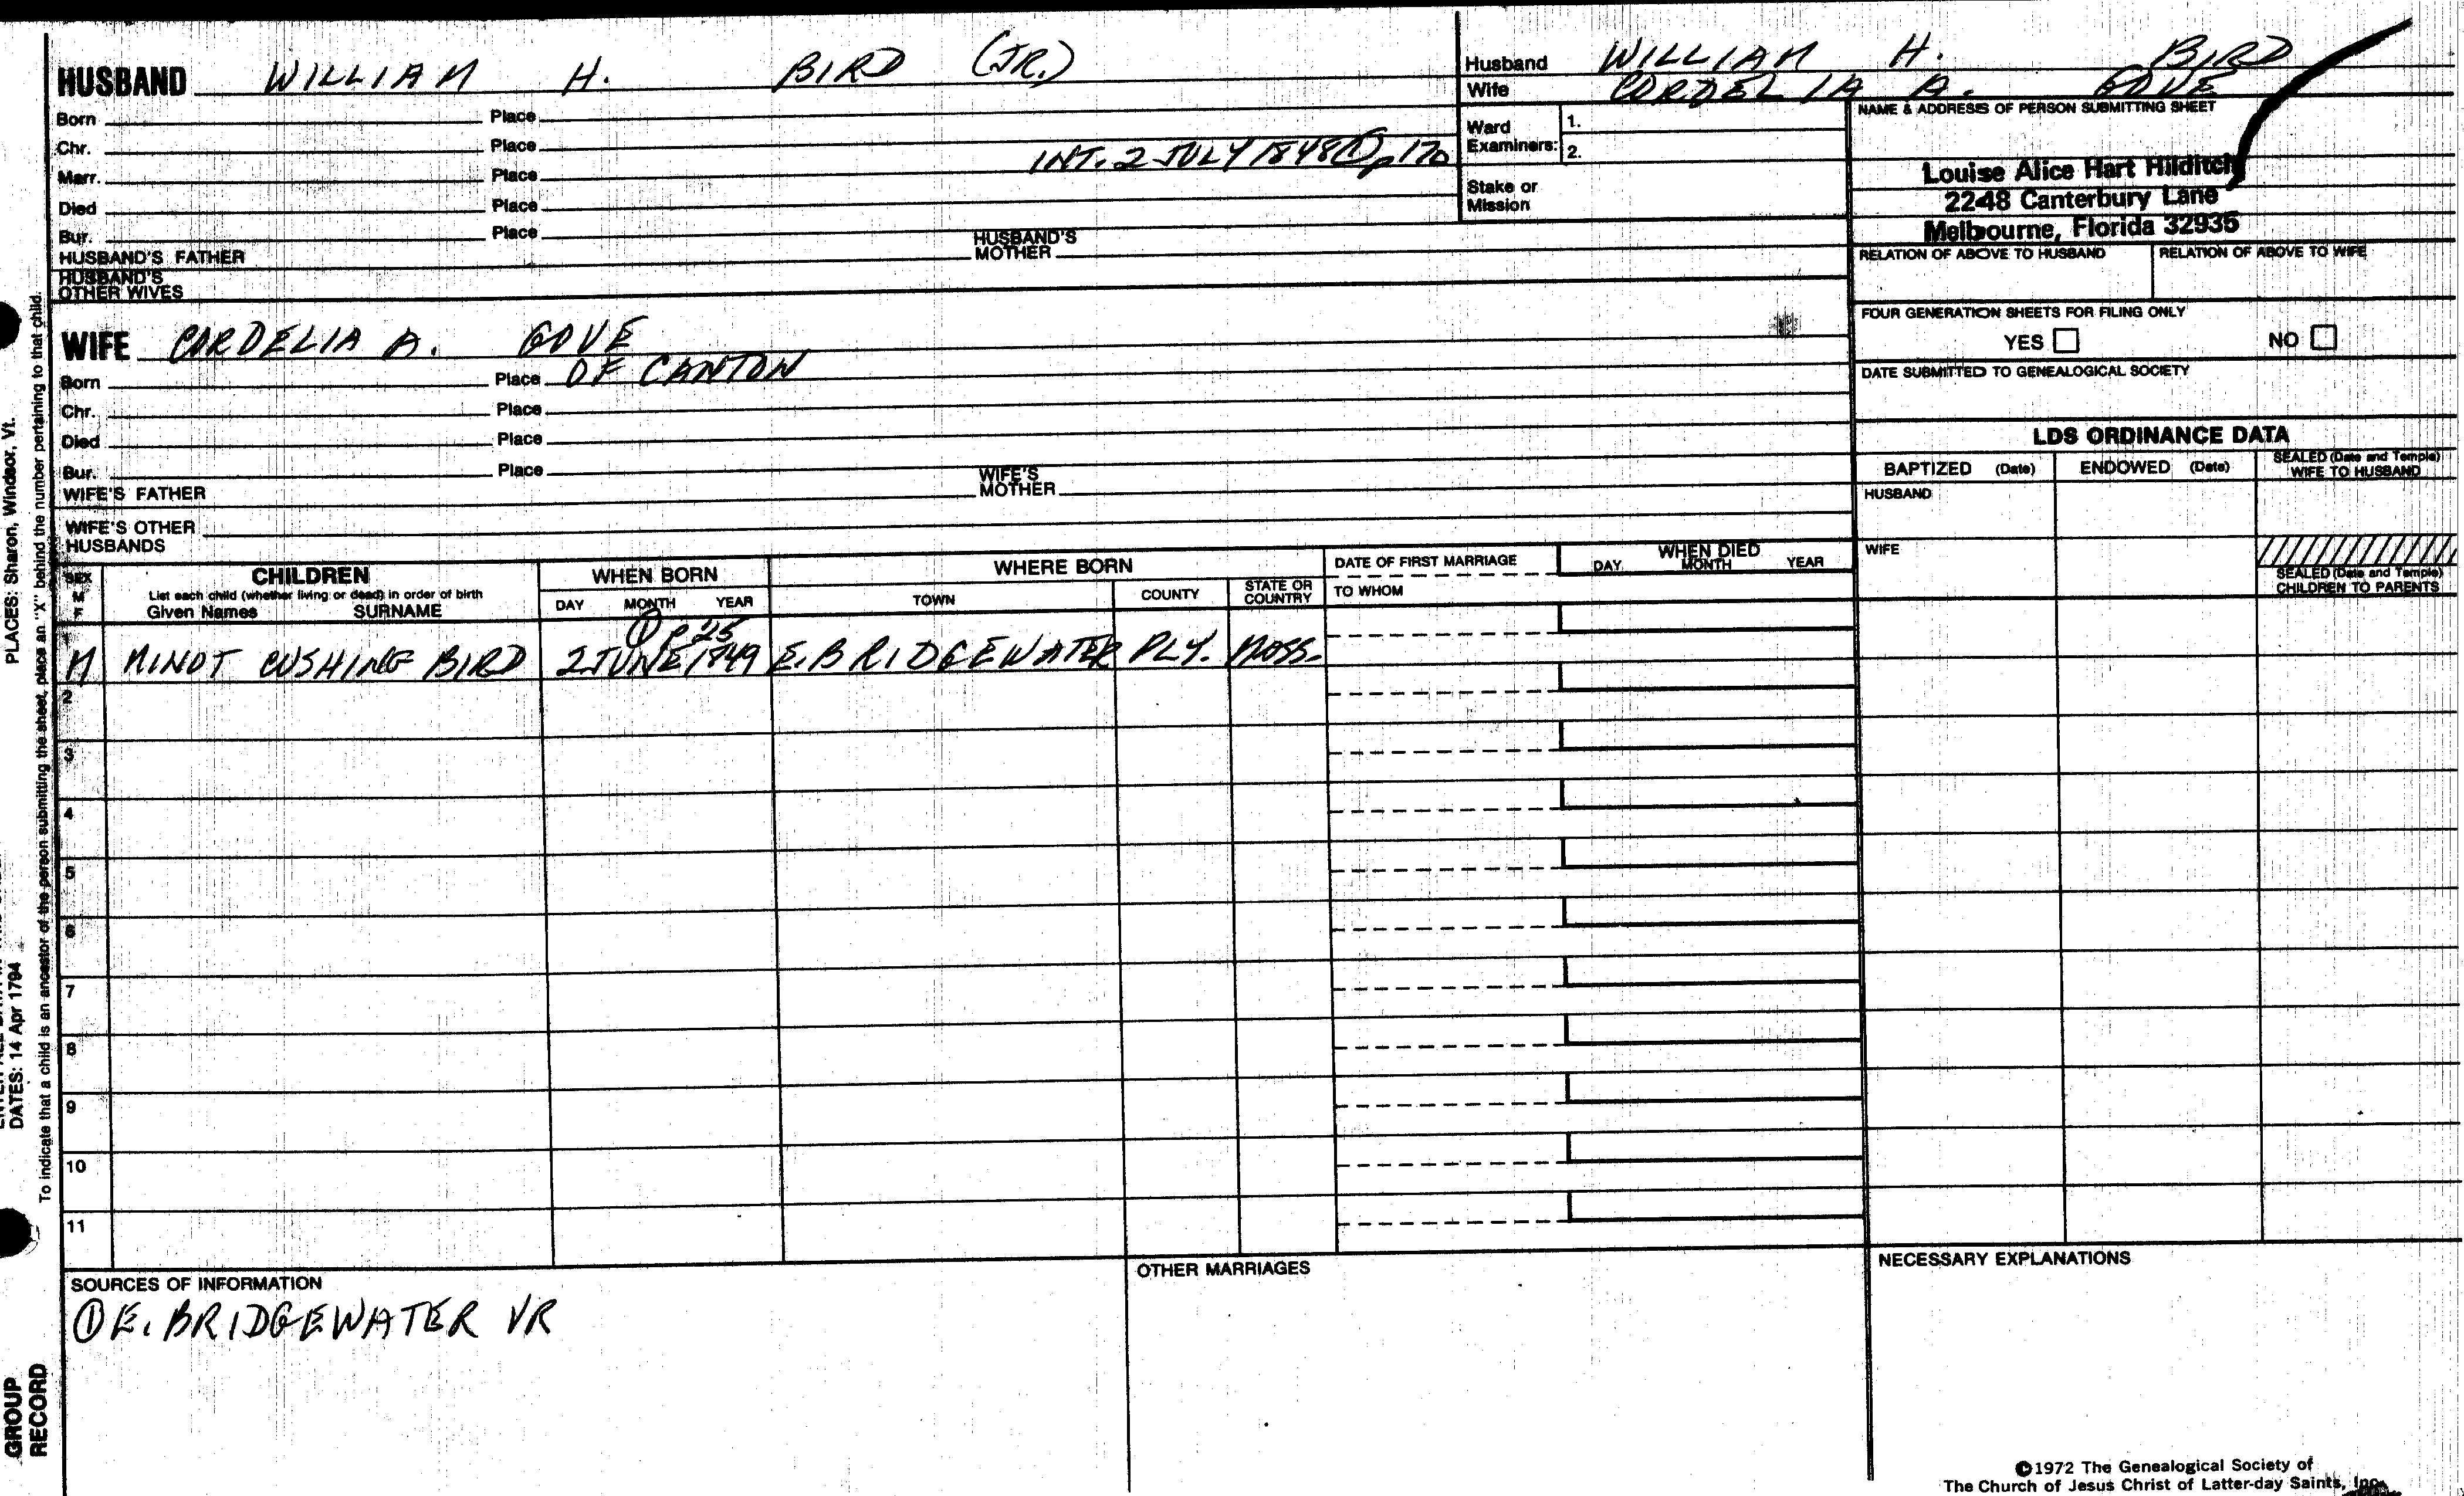 HUSBAND WILLIAM H. BIRD (JR.)
Born Place
Chr. Place
Marr. Place INT. 2 JULY 1848 ① p 170
Died Place
Bur. Place
HUSBAND'S FATHER HUSBAND'S MOTHER
HUSBAND'S OTHER WIVES
WIFE CORDELIA A. GOVE
Born Place OF CANTON
Chr. Place
Died Place
Bur. Place
WIFE'S FATHER WIFE'S MOTHER
WIFE'S OTHER HUSBANDS
Husband WILLIAM H. BIRD
Wife CORDELIA A. GOVE
Ward Examiners: 1.
2.
Stake or Mission
NAME & ADDRESS OF PERSON SUBMITTING SHEET
Louise Alice Hart Hilditch
2248 Canterbury Lane
Melbourne, Florida 32935
RELATION OF ABOVE TO HUSBAND RELATION OF ABOVE TO WIFE
FOUR GENERATION SHEETS FOR FILING ONLY
YES NO
DATE SUBMITTED TO GENEALOGICAL SOCIETY
LDS ORDINANCE DATA
BAPTIZED (Date) ENDOWED (Date) SEALED (Date and Temple) WIFE TO HUSBAND
HUSBAND
WIFE
SEALED (Date and Temple) CHILDREN TO PARENTS
SEX M F
CHILDREN
List each child (whether living or dead) in order of birth
Given Names SURNAME
WHEN BORN
DAY MONTH YEAR
WHERE BORN
TOWN COUNTY STATE OR COUNTRY
DATE OF FIRST MARRIAGE
TO WHOM
WHEN DIED
DAY MONTH YEAR
1 ① p 25
M MINOT CUSHING BIRD 2 JUNE 1849 E. BRIDGEWATER PLY. MASS.
2
3
4
5
6
7
8
9
10
11
SOURCES OF INFORMATION
① E. BRIDGEWATER VR
OTHER MARRIAGES
NECESSARY EXPLANATIONS
©1972 The Genealogical Society of
The Church of Jesus Christ of Latter-day Saints, Inc.
PLACES: Sharon, Windsor, Vt.
DATES: 14 Apr 1794
To indicate that a child is an ancestor of the person submitting the sheet, place an "X" behind the number pertaining to that child.
GROUP
RECORD